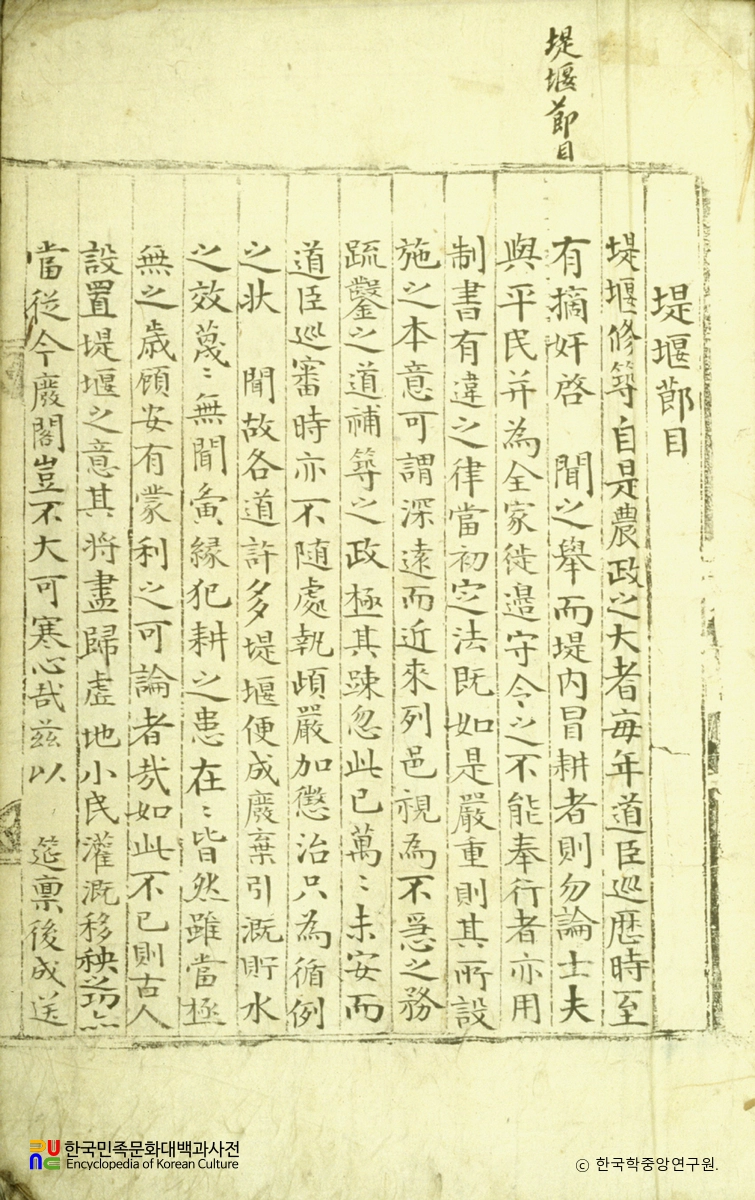 堤堰節目
堤堰節目
堤堰修築自是農政之大者每年道臣巡歷時至
有摘奸啓 聞之擧而堤內冒耕者則勿論士夫
與平民并為全家徙邉守令之不能奉行者亦用
制書有違之律當初定法既如是嚴重則其所設
施之本意可謂深遠而近來列邑視為不急之務
疏鑿之道補築之政極其踈忽此已萬〻未安而
道臣巡審時亦不隨處執頉嚴加懲治只為循例
之狀 聞故各道許多堤堰便成廢棄引漑貯水
之效蔑〻無聞夤緣犯耕之患在〻皆然雖當極
無之歲顧安有蒙利之可論者哉如此不已則古人
設置堤堰之意其將盡歸虛地小民灌漑移秧之功亦
當從今廢閣豈不大可寒心哉玆以 筵稟後成送
한국민족문화대백과사전
Encyclopedia of Korean Culture
ⓒ 한국학중앙연구원.